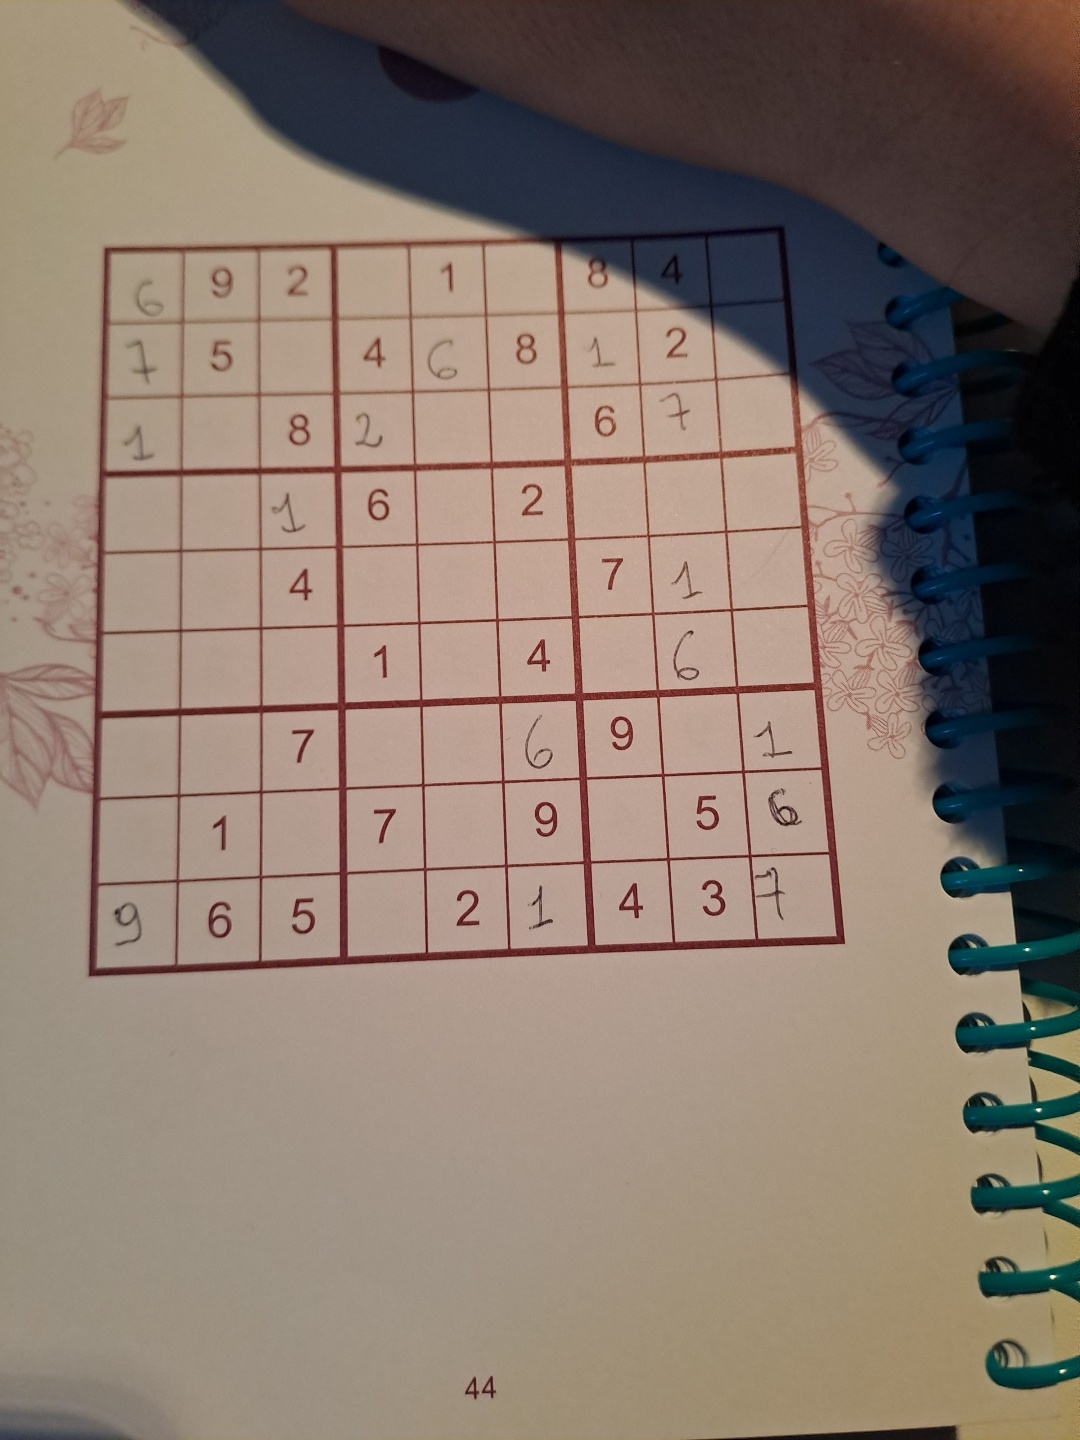 6 9 2 1 8 4
7 5 4 6 8 1 2
1 8 2 6 7
1 6 2
4 7 1
1 4 6
7 6 9 1
1 7 9 5 6
9 6 5 2 1 4 3 7
44